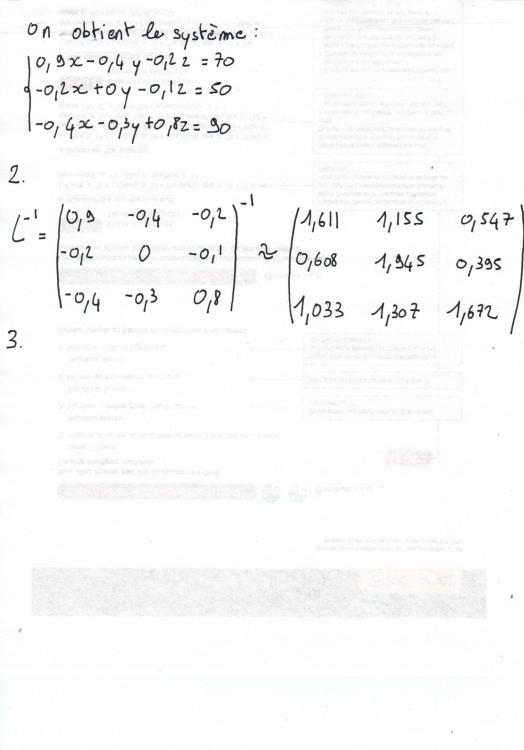 On obtient le système :
0,9x - 0,4y - 0,2z = 70
-0,2x + 0y - 0,1z = 50
-0,4x - 0,3y + 0,8z = 90
2.
L⁻¹ = (0,9 -0,4 -0,2)⁻¹ ≈ (1,611 1,155 0,547)
-0,2 0 -0,1 0,608 1,945 0,395
-0,4 -0,3 0,8 1,033 1,307 1,672
3.